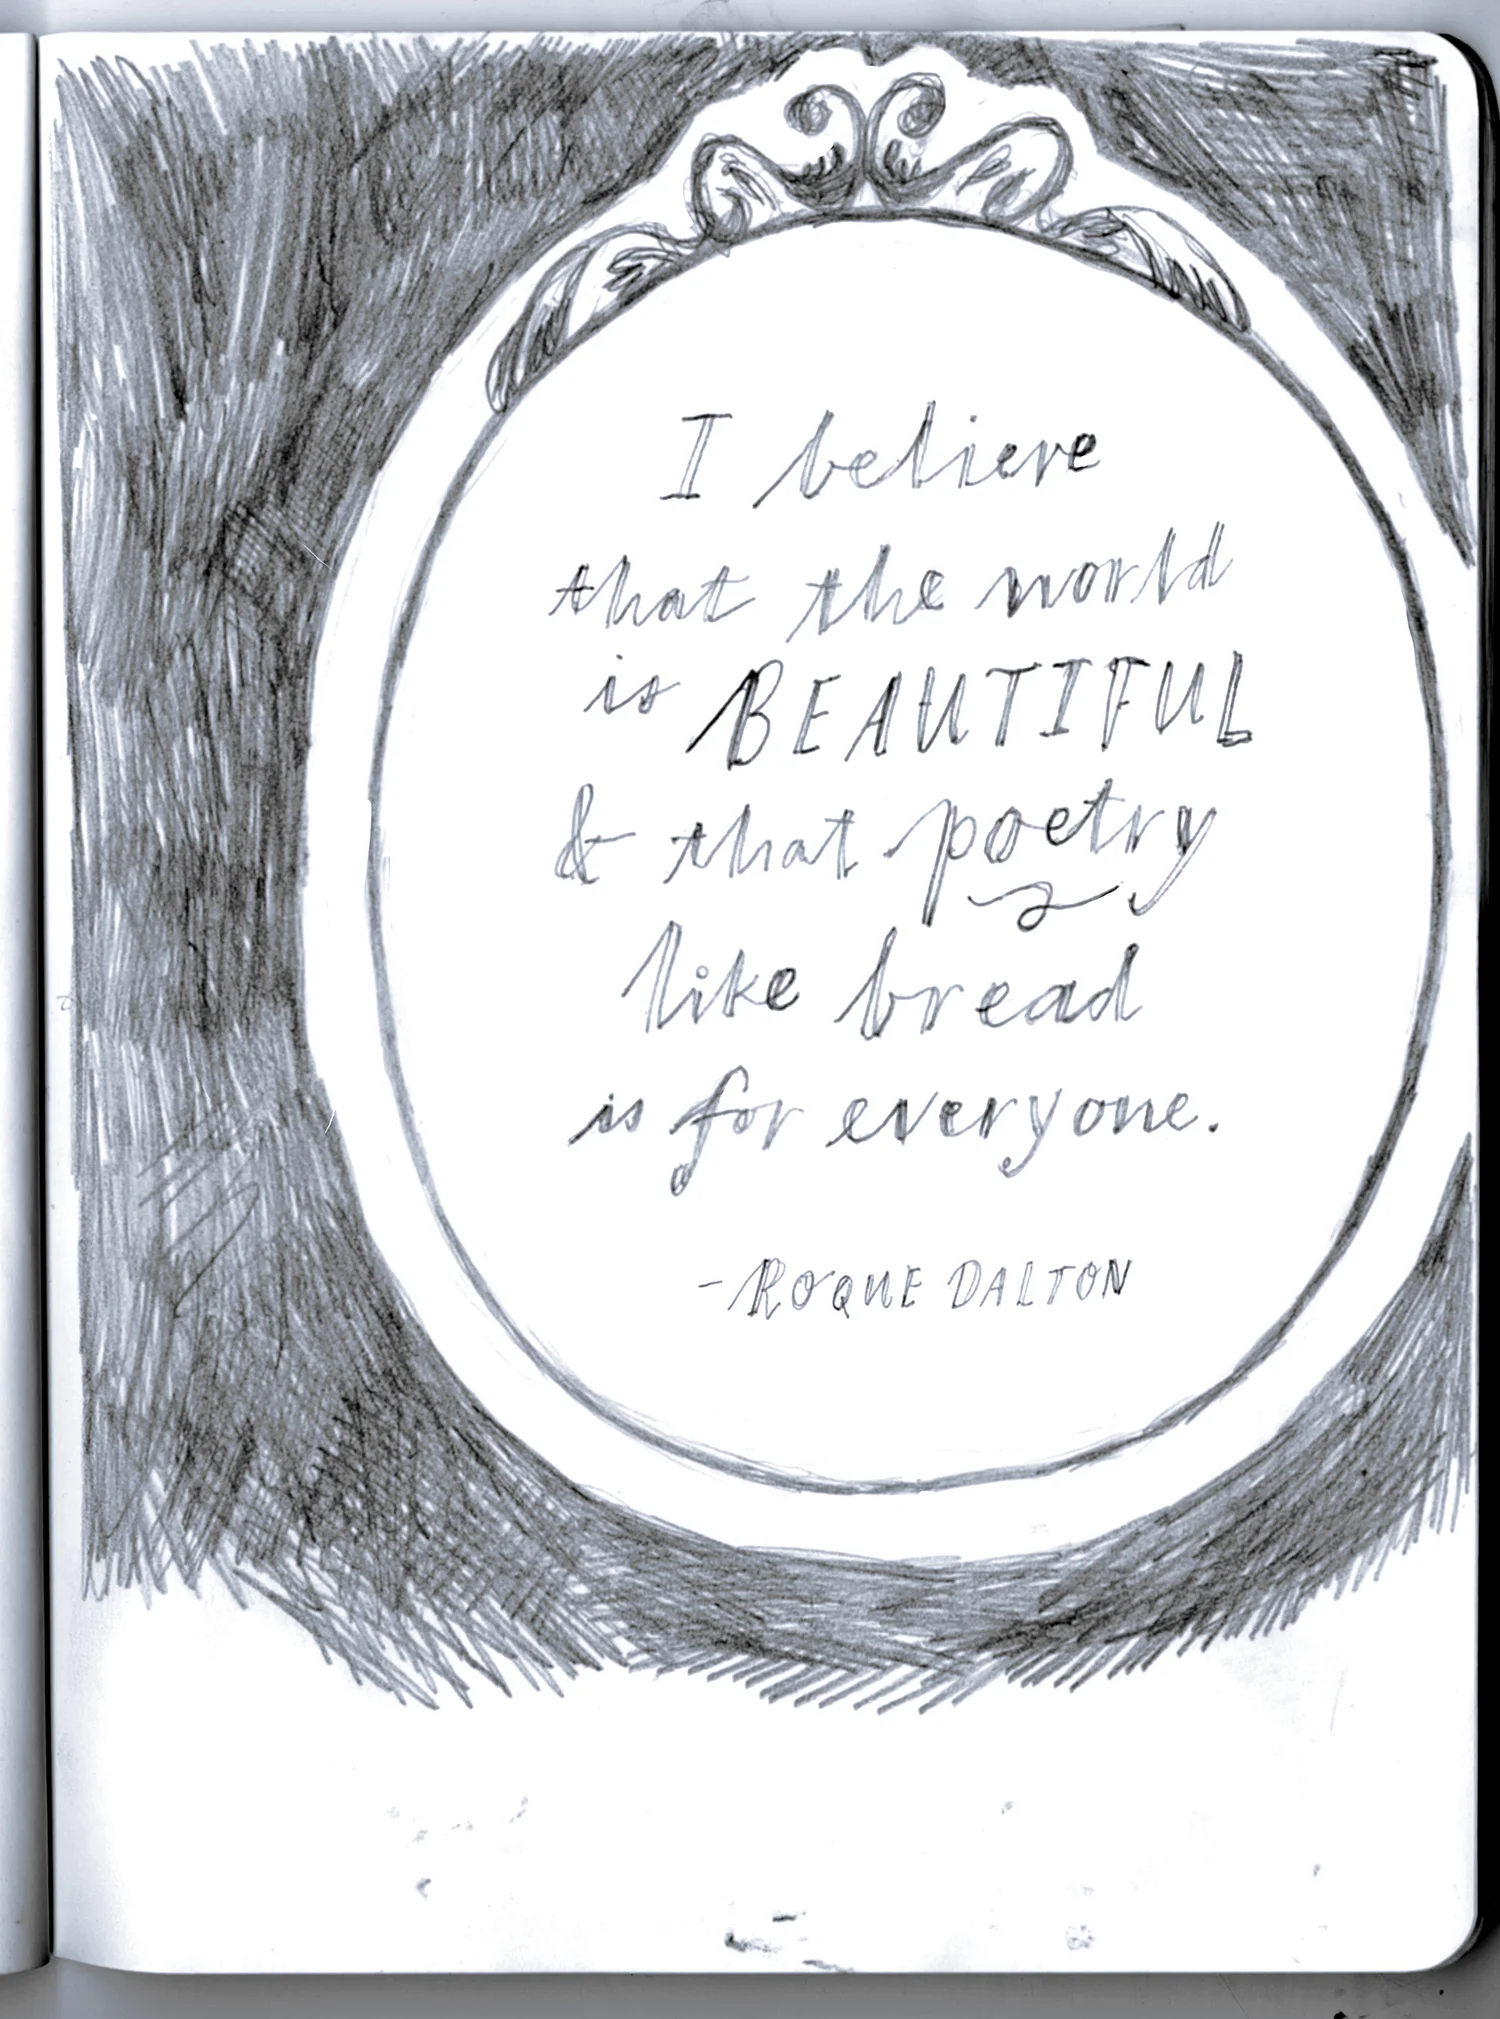 I believe
that the world
is BEAUTIFUL
& that poetry
like bread
is for everyone.
- ROQUE DALTON